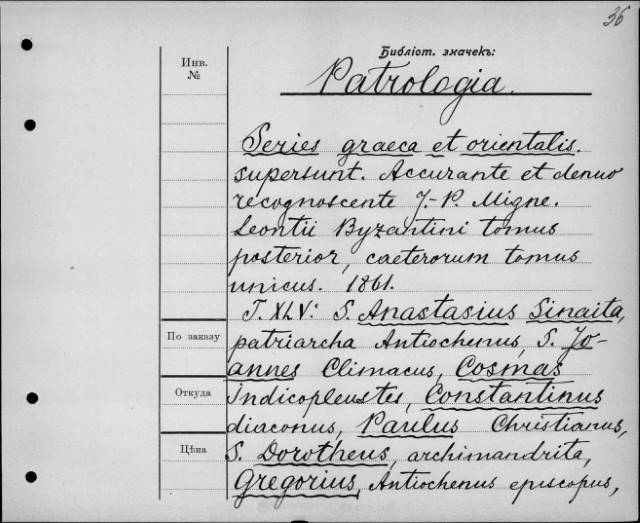 36
Библіот. значекъ:
Patrologia.
Инв.
№
Series graeca et orientalis.
supersunt. Accurante et denuo
recognoscente J.-P. Migne.
Leontii Byzantini tomus
posterior, caeterorum tomus
unicus. 1861.
T. XLV: S. Anastasius Sinaita,
По заказу
patriarcha Antiochenus, S. Jo-
annes Climacus, Cosmas
Откуда
Indicopleustes, Constantinus
diaconus, Paulus Christianus,
Цѣна
S. Dorotheus, archimandrita,
Gregorius, Antiochenus episcopus,